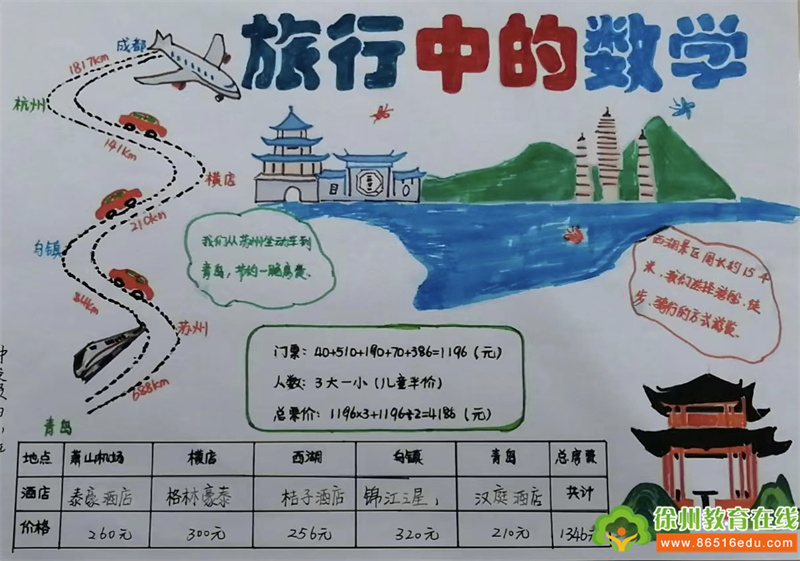 旅行中的数学
成都
1817km
杭州
141km
横店
210km
乌镇
84km
苏州
688km
青岛
我们从苏州坐动车到
青岛，节约一晚房费.
西湖景区周长约15千
米，我们选择游船、徒
步、骑行的方式游览。
门票：40+510+190+70+386=1196（元）
人数：3大一小（儿童半价）
总票价：1196×3+1196÷2=4186（元）
地点 萧山机场 横店 西湖 乌镇 青岛 总房费
酒店 泰豪酒店 格林豪泰 桔子酒店 锦江之星, 汉庭酒店 共计
价格 260元 300元 256元 320元 210元 1346元
徐州教育在线
www.86516edu.com